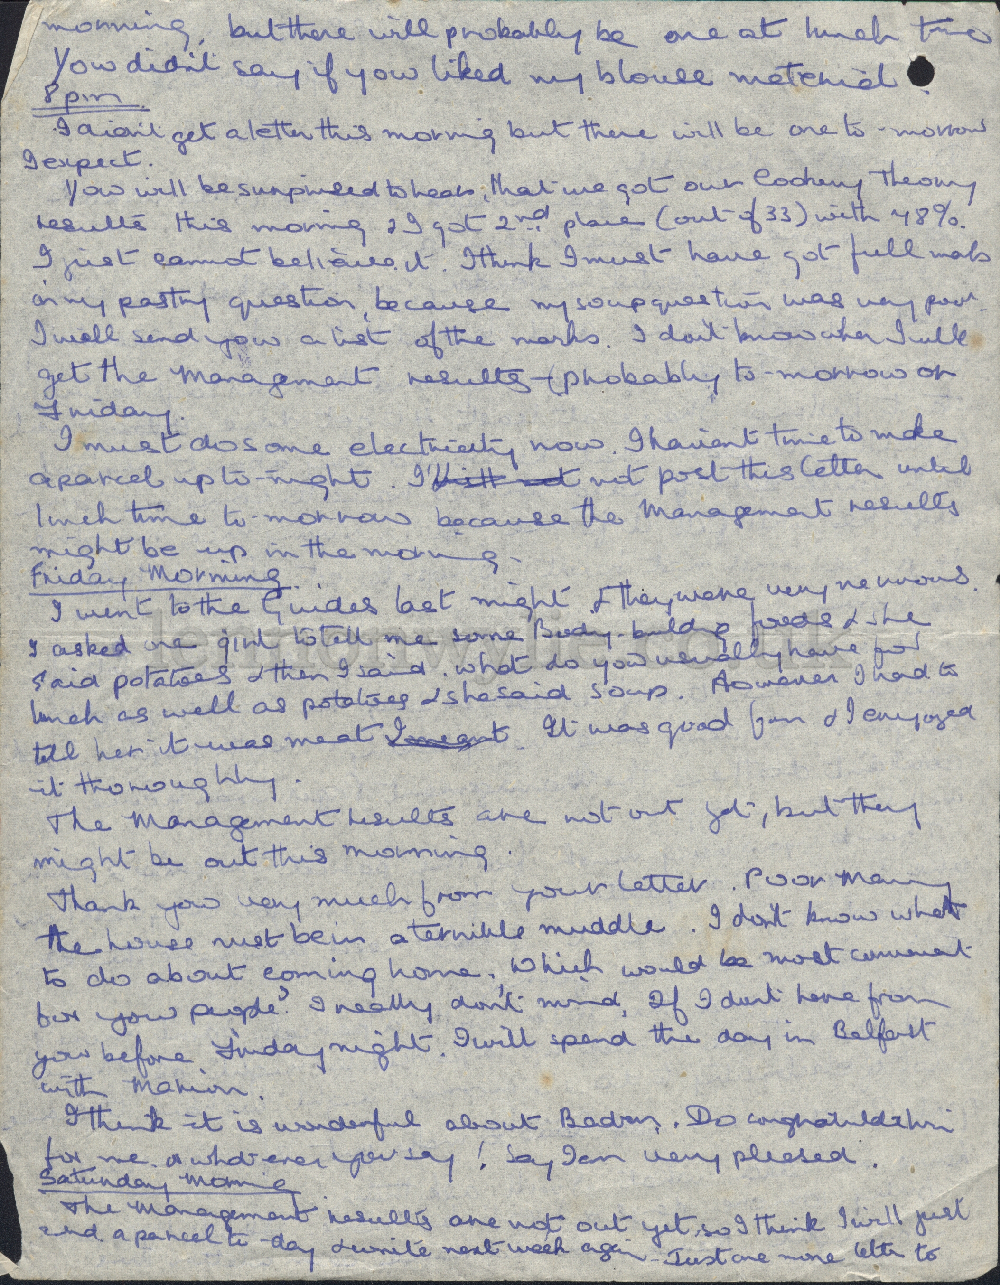 morning, but there will probably be one at lunch time
You didn't say if you liked my blouse material.
8pm.
I didn't get a letter this morning but there will be one to-morrow
I expect.
You will be surprised to hear, that we got our Cookery Theory
results this morning & I got 2nd place (out of 33) with 48%.
I just cannot believe it. I think I must have got full marks
on my pastry question, because my soup question was very poor.
I will send you a list of the marks. I don't know when I will
get the Management results - (probably to-morrow or
Friday.
I must do some electricity now. I haven't time to make
a parcel up to-night. I'll not post this letter until
lunch time to-morrow because the Management results
might be up in the morning.
Friday Morning.
I went to the Guides last night & they were very nervous.
I asked one girl to tell me some Body-building foods & she
said potatoes & then I said. what do you usually have for
lunch as well as potatoes & she said soup. However I had to
tell her it was meat I meant. It was good fun & I enjoyed
it thoroughly.
The Management results are not out yet, but they
might be out this morning.
Thank you very much from your letter. Poor Mammy
the house must be in a terrible muddle. I don't know what
to do about coming home, Which would be most convenient
for you people? I really don't mind, If I don't hear from
you before Friday night, I will spend the day in Belfast
with Marion.
I think it is wonderful about . Do congratulate him
for me or what ever you say! Say I am very pleased.
Saturday Morning
The Management results are not out yet, so I think I will just
send a parcel to-day & write next week again - Just one more letter to
lennonwylie.co.uk